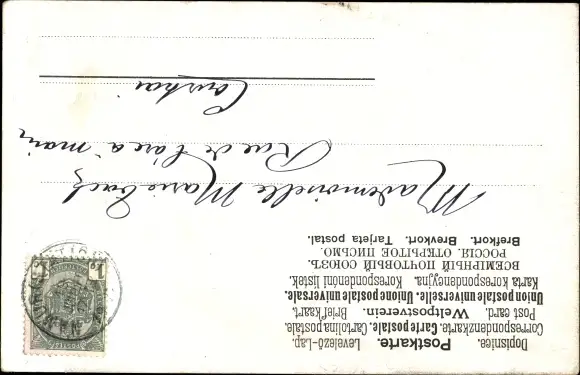 Dopisnice. Postkarte. Levelező-Lap.
Correspondenzkarte. Carte postale. Cartolina postale.
Post card. Weltpostverein. Briefkaart.
Union postale universelle. Unione postale universale.
Karta korespondencyjna. Korespondenčni listek.
ВСЕМІРНЫЙ ПОЧТОВЫЙ СОЮЗЪ.
РОССІЯ. ОТКРЫТОЕ ПИСЬМО.
Brefkort. Brevkort. Tarjeta postal.
Mademoiselle Marie
Rue de
Courtrai
1